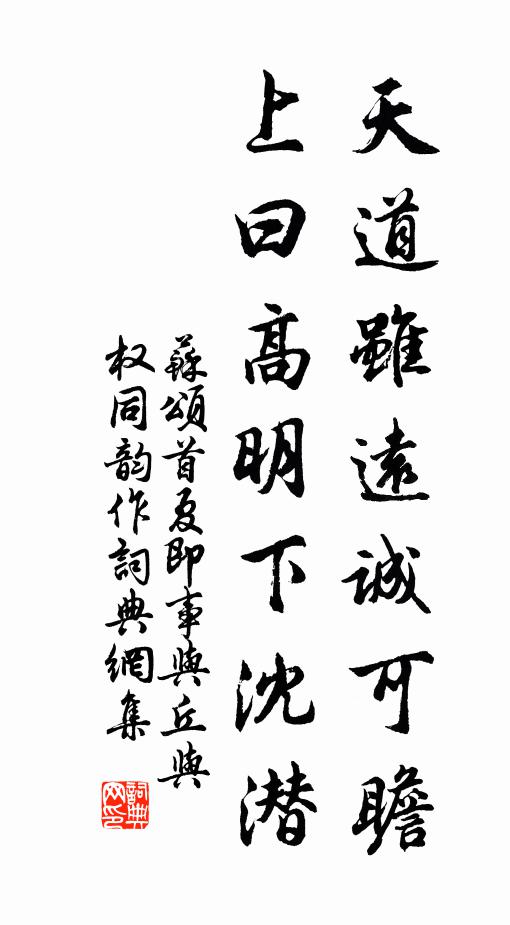 天道雖遠誠可瞻
上曰高明下沈潜
蘇頌首夏即事與丘與
权同韵作詞典網集
詞典网印